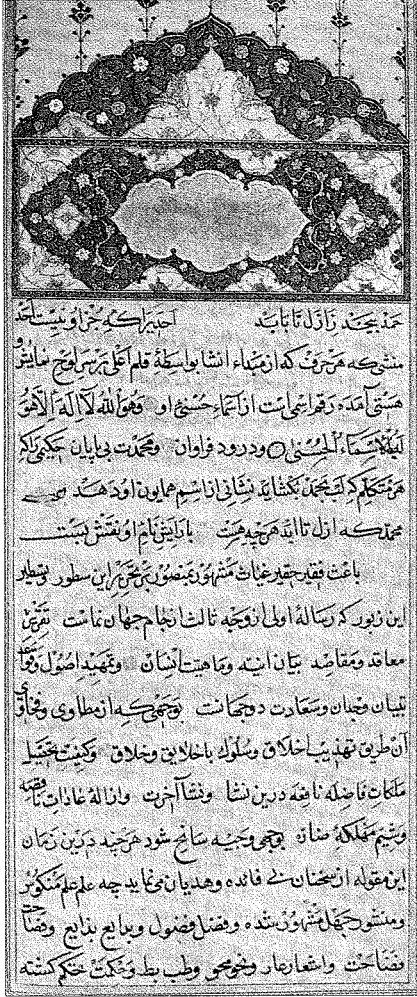 حمد بیحد ز ازل تا بابد احدیرا که جز او نیست احد
منشی که هر حرف که از مبداء انشا بواسطهٔ قلم اعلی بر سر لوح نمایش و
هستی آمده رقم اسمی است از اسماء حسنی او وهو الله لا اله الا هو
له الاسماء الحسنی و درود فراوان و محمدت بی پایان حکیمی را که
هر متکلم که لب بحمد بگشاید نشانی از اسم همایون او دهد
محمد که ازل تا ابد هر چه هست بآرایش نام او نقش بست
باعث فقیر حقیر غیاث مشهور بمنصور بر تحریر این سطور و تسطیر
این زبور که رسالهٔ اولی از وجه ثالث از جام جهان نماست تقریر
معاقد و مقاصد بیان انیه و ماهیت انسان و تمهید اصول و قواعد
تبیان وجدان و سعادت دو جهانست بوجهی که از مطاوی و فحاوی
آن طریق تهذیب اخلاق و سلوک با خلایق و خلاق و کیفیت تحصیل
ملکات فاضله نافعه درین نشا و نشا آخرت و ازالهٔ عادات ناقصه
و شیم مهلکهٔ ضاره بوجهی وجیه سانح شود هر چند درین زمان
این مقوله از سخنان بی فائده و هذیان می نماید چه علم علم منکوس
و منشور جهل مشهور شده و فضل فضول و بدایع بذایع و فصاحت
فضاحت و اشعار عار و نحو محو و طب بط و حکمت حکم گشته